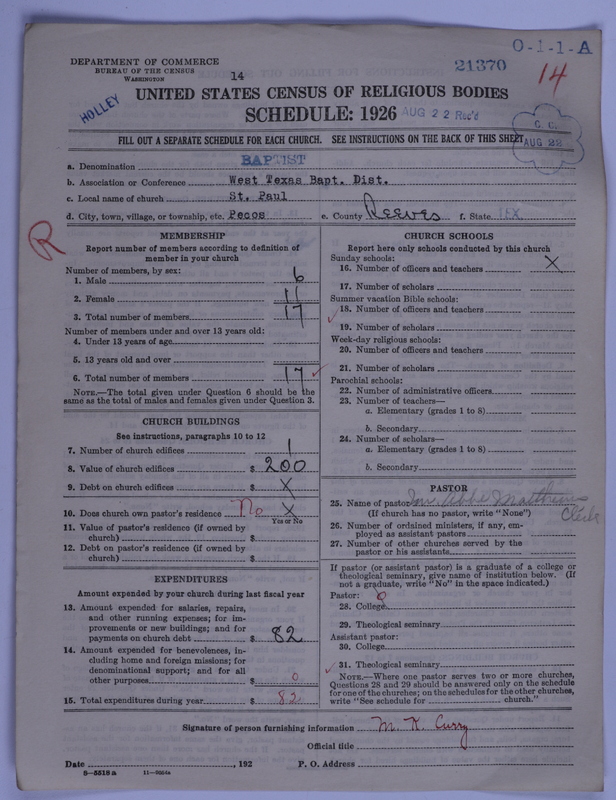 O-1-1-A
DEPARTMENT OF COMMERCE
BUREAU OF THE CENSUS
WASHINGTON
14
21370
14
HOLLEY
UNITED STATES CENSUS OF RELIGIOUS BODIES
SCHEDULE: 1926
AUG 22 Rec'd
C. C.
AUG 22
FILL OUT A SEPARATE SCHEDULE FOR EACH CHURCH. SEE INSTRUCTIONS ON THE BACK OF THIS SHEET
a. Denomination BAPTIST
b. Association or Conference West Texas Bapt. Dist.
c. Local name of church St. Paul
d. City, town, village, or township, etc. Pecos e. County Reeves f. State TEX
R
MEMBERSHIP
Report number of members according to definition of
member in your church
Number of members, by sex:
1. Male 6
2. Female 11
3. Total number of members 17
Number of members under and over 13 years old:
4. Under 13 years of age
5. 13 years old and over
6. Total number of members 17
NOTE.—The total given under Question 6 should be the
same as the total of males and females given under Question 3.
CHURCH BUILDINGS
See instructions, paragraphs 10 to 12
7. Number of church edifices 1
8. Value of church edifices $ 200
9. Debt on church edifices $ X
10. Does church own pastor's residence? No X
Yes or No
11. Value of pastor's residence (if owned by
church) $
12. Debt on pastor's residence (if owned by
church) $
EXPENDITURES
Amount expended by your church during last fiscal year
13. Amount expended for salaries, repairs,
and other running expenses; for im-
provements or new buildings; and for
payments on church debt $ 82
14. Amount expended for benevolences, in-
cluding home and foreign missions; for
denominational support; and for all
other purposes $ 0
15. Total expenditures during year $ 82
CHURCH SCHOOLS
Report here only schools conducted by this church
Sunday schools:
16. Number of officers and teachers X
17. Number of scholars
Summer vacation Bible schools:
18. Number of officers and teachers
19. Number of scholars
Week-day religious schools:
20. Number of officers and teachers
21. Number of scholars
Parochial schools:
22. Number of administrative officers
23. Number of teachers—
a. Elementary (grades 1 to 8)
b. Secondary
24. Number of scholars—
a. Elementary (grades 1 to 8)
b. Secondary
PASTOR
25. Name of pastor
(If church has no pastor, write "None") Clerk
26. Number of ordained ministers, if any, em-
ployed as assistant pastors
27. Number of other churches served by the
pastor or his assistants
If pastor (or assistant pastor) is a graduate of a college or
theological seminary, give name of institution below. (If
not a graduate, write "No" in the space indicated.)
Pastor: 0
28. College
29. Theological seminary
Assistant pastor:
30. College
31. Theological seminary
NOTE.—Where one pastor serves two or more churches,
Questions 28 and 29 should be answered only on the schedule
for one of the churches; on the schedules for the other churches,
write "See schedule for church."
Signature of person furnishing information M. K. Curry
Official title
Date , 192 P. O. Address
8-5518a 11-9056a